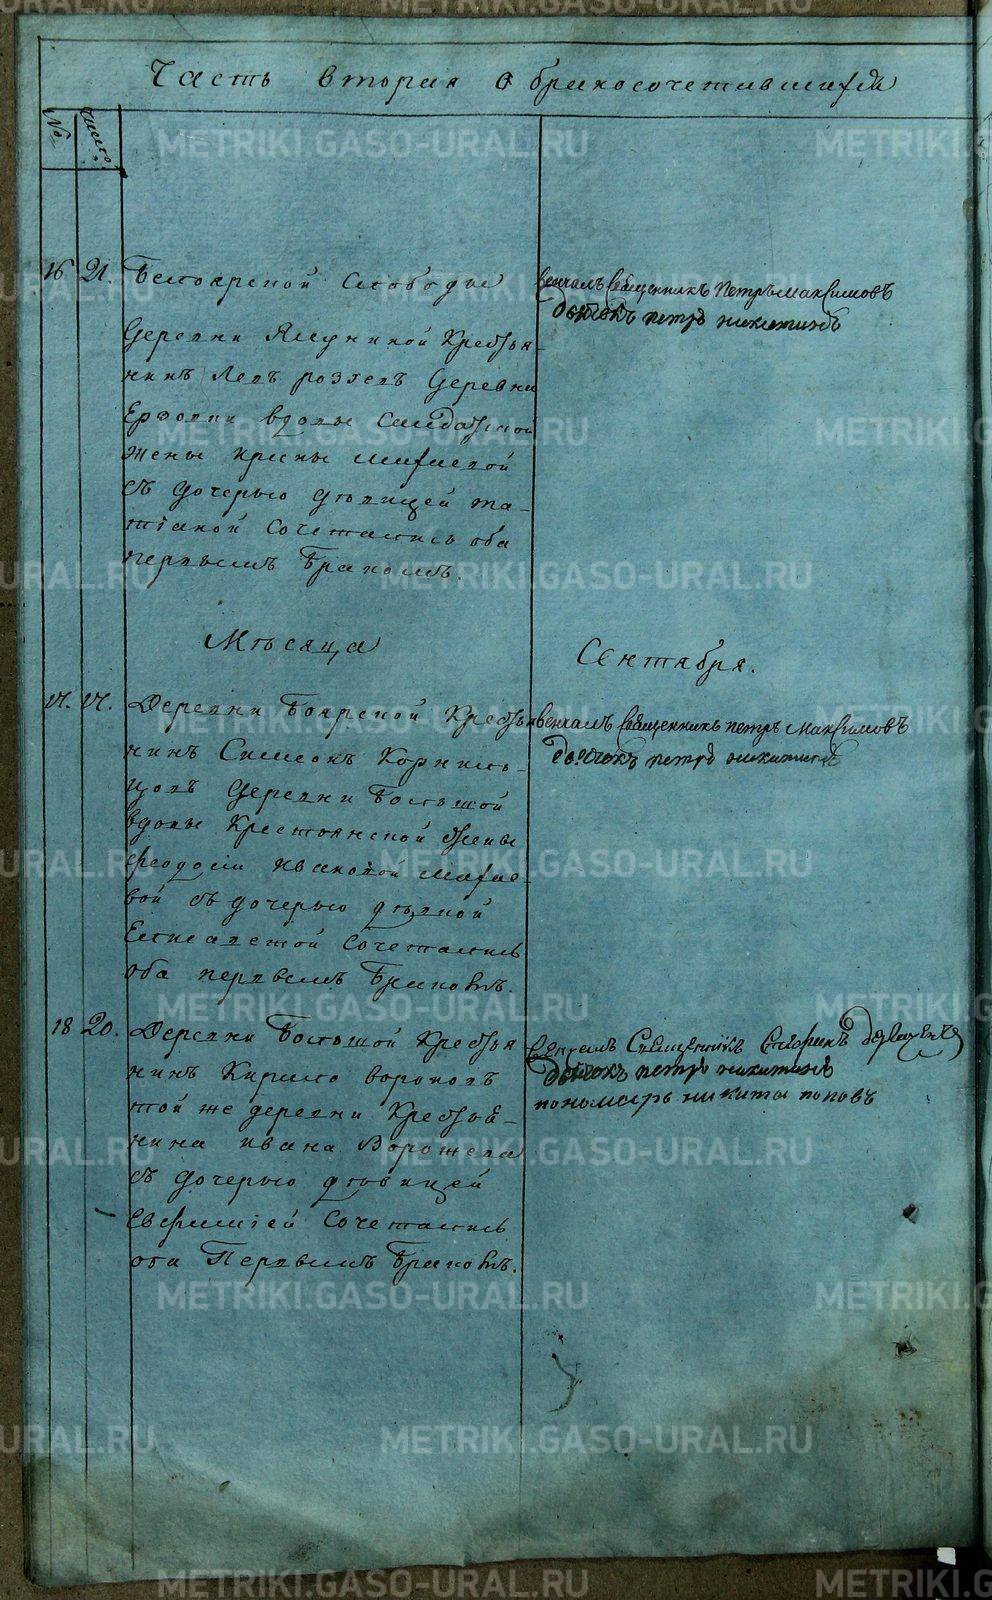 Часть вторая о бракосочетавшихся
№ число
16 21. Белоярской слободы
деревни Ялуниной крестья-
нинъ Левъ деревни
вдовы салдатской
жены
съ дочерью девицей та-
тiаной сочетались оба
первымъ бракомъ.
венчалъ священникъ петръ максимовъ
дьячокъ петръ никитинъ
Мѣсяца Сентября.
17. 17. Деревни Боярской крестья
нинъ Симеонъ Корниль-
цовъ деревни Большой
вдовы крестьянской жены
феодосiи ивановой
вой съ дочерью дѣвкой
Елисаветой сочетались
оба первымъ бракомъ.
венчалъ священникъ петръ максимовъ
дьячокъ петръ никитинъ
18 20. Деревни Большой крестья
нинъ Кирило
той же деревни крестья-
нина ивана
съ дочерью дѣвицей
Евфимiей сочетались
оба Первымъ бракомъ.
венчалъ Священникъ
дьячокъ петръ никитинъ
пономарь никита поповъ
METRIKI.GASO-URAL.RU